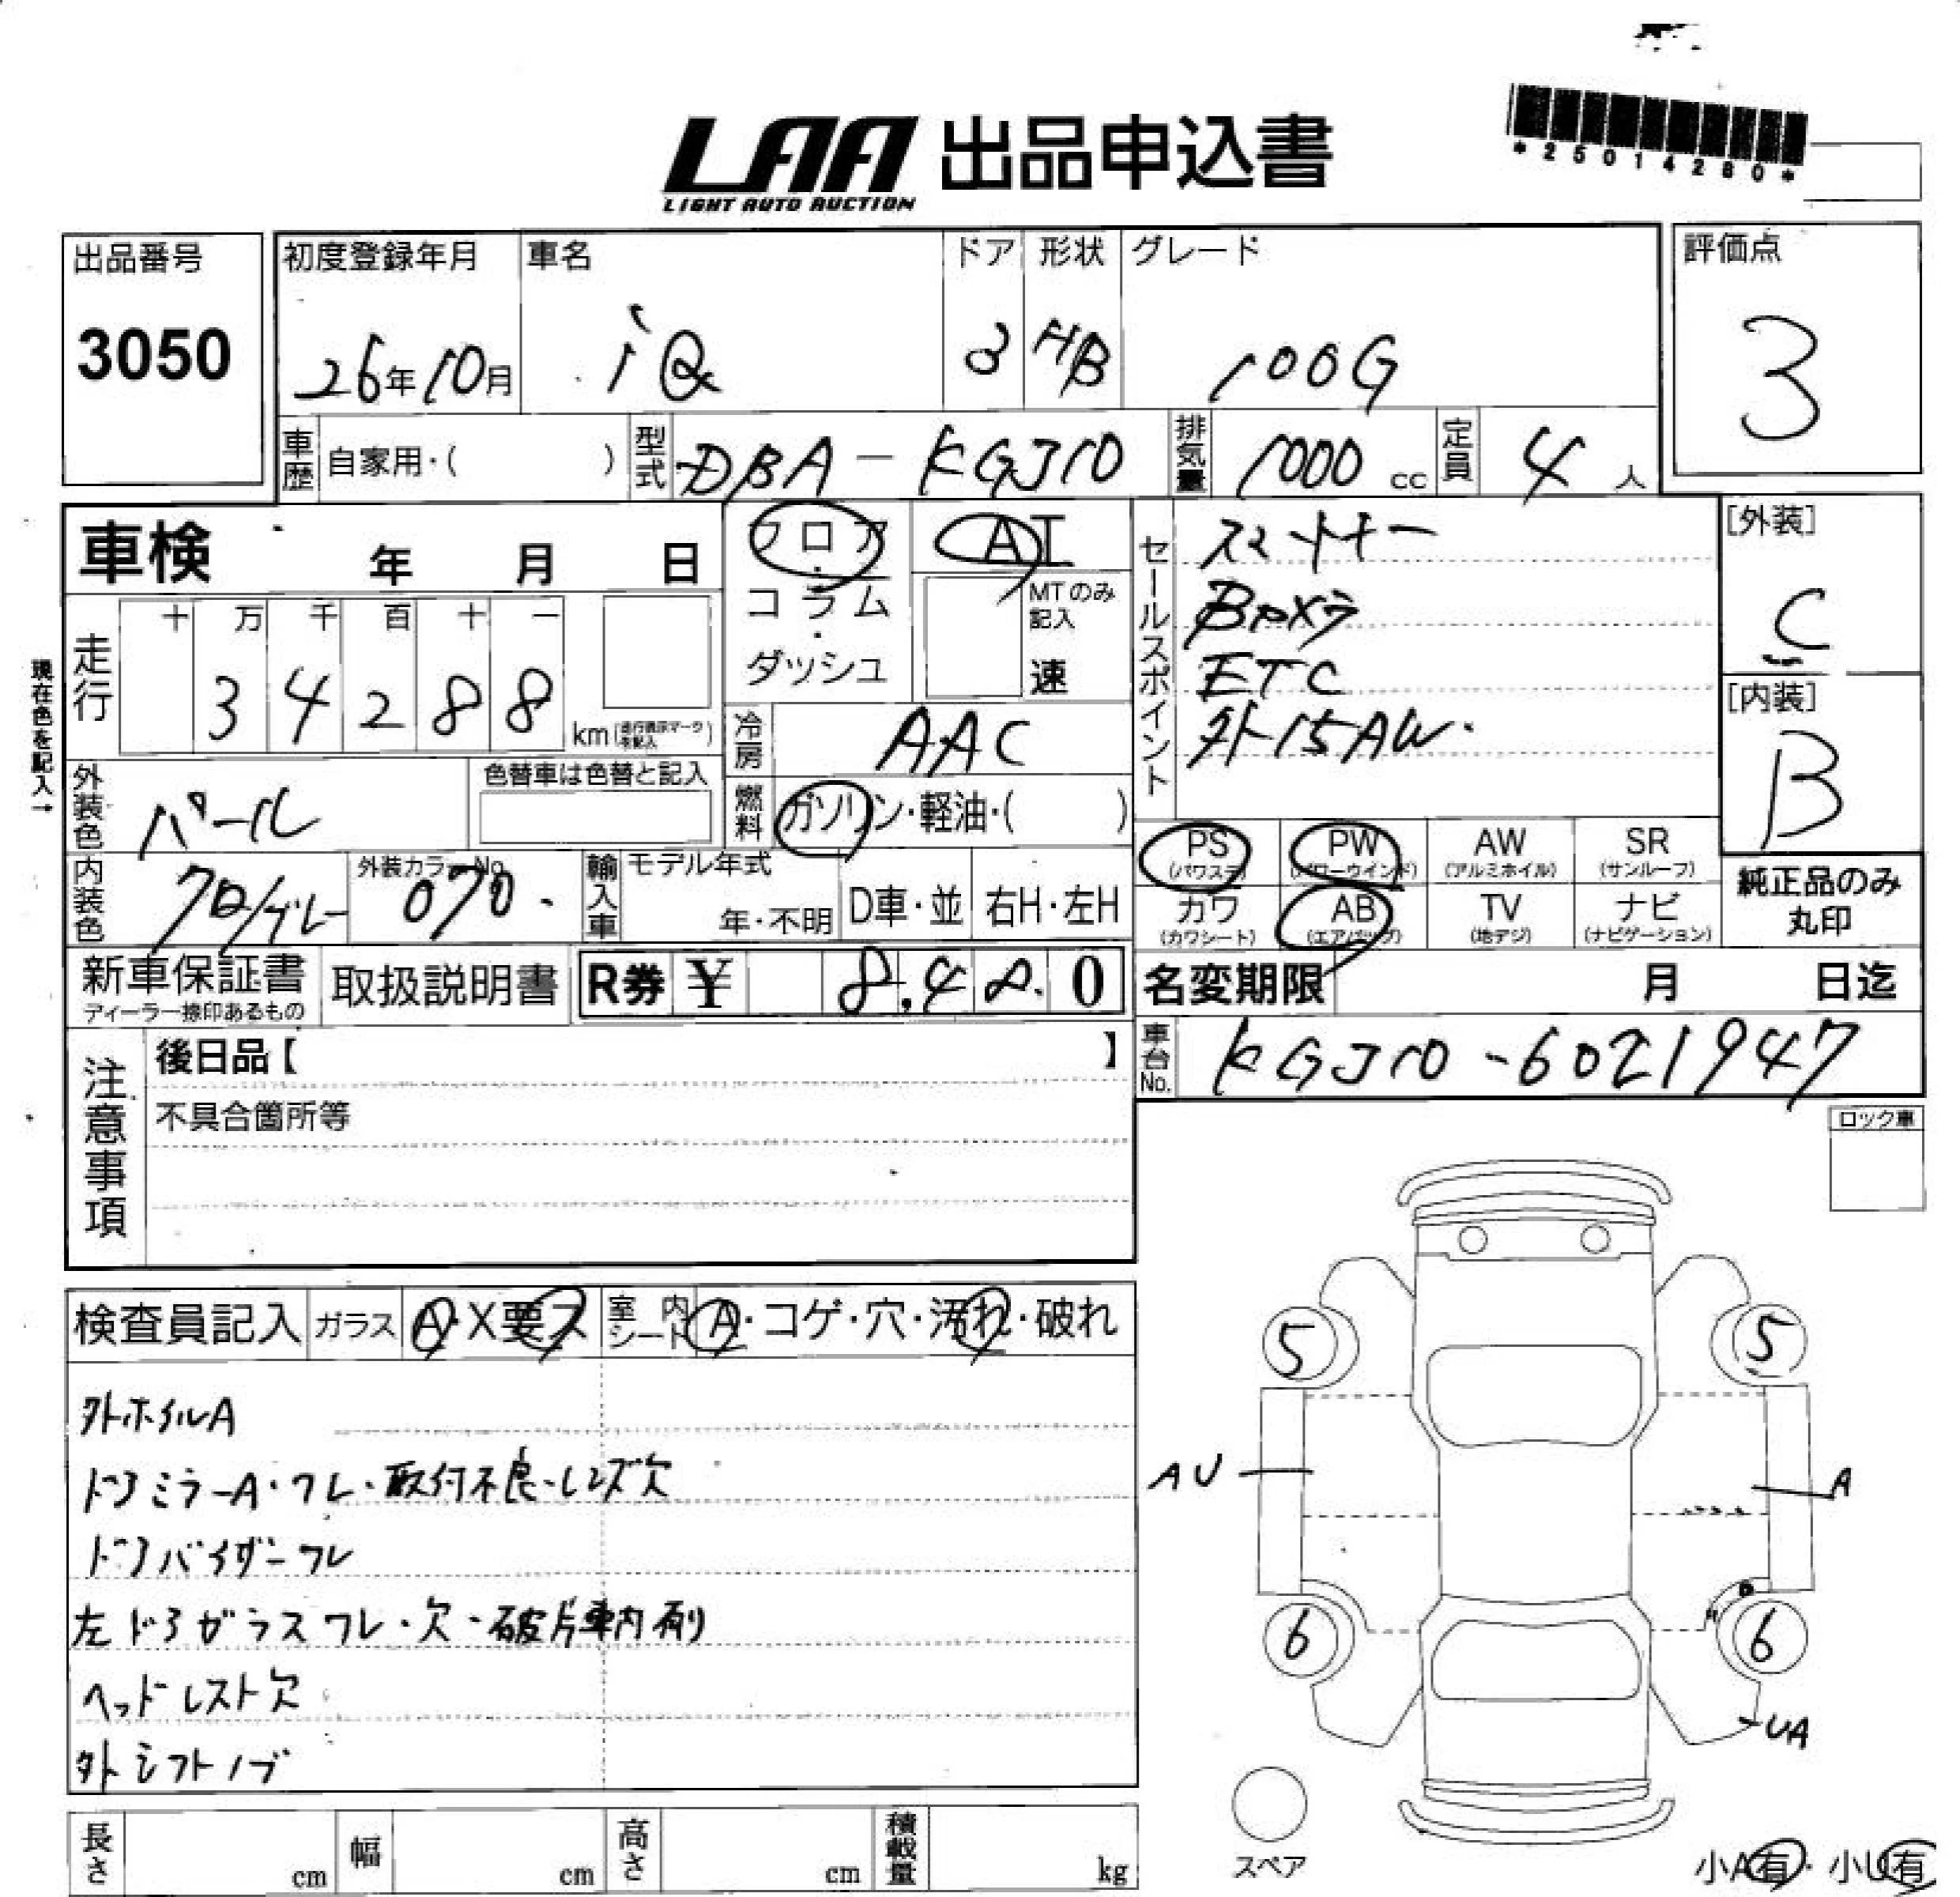 LAA 出品申込書
LIGHT AUTO AUCTION
*25014280*
出品番号
3050
初度登録年月
26年10月
車名
iQ
ドア
3
形状
HB
グレード
100G
評価点
3
車歴
自家用・( )
型式
DBA-KGJ10
排気量
1000 cc
定員
4 人
車検 年 月 日
フロア・コラム・ダッシュ
AT
MTのみ記入
速
セールスポイント
スマートキー
Bカメラ
ETC
外15AW.
[外装]
C
[内装]
B
現在色を記入→
走行
十 万 千 百 十 一
3 4 2 8 8
km
冷房
AAC
外装色
パール
色替車は色替と記入
燃料
ガソリン・軽油・( )
内装色
クロ/グレー
外装カラーNo.
070.
輸入車
モデル年式
年・不明
D車・並
右H・左H
PS (パワステ)
PW (パワーウインド)
AW (アルミホイル)
SR (サンルーフ)
カワ (カワシート)
AB (エアバッグ)
TV (地デジ)
ナビ (ナビゲーション)
純正品のみ
丸印
新車保証書
ディーラー捺印あるもの
取扱説明書
R券 ¥ 8,480
名変期限 月 日迄
車台No.
KGJ10-6021947
注意事項
後日品【 】
不具合箇所等
ロック車
検査員記入
ガラス
A・X要ス
室内シート
A・コゲ・穴・汚れ・破れ
外ホイルA
ドアミラーA・ワレ・取付不良・レンズ欠
ドアバイザーワレ
左ドアガラスワレ・欠・破片車内有り
ヘッドレスト欠
外シフトノブ
5
5
AU
A
6
6
UA
スペア
小A有・小U有
長さ cm
幅 cm
高さ cm
積載量 kg